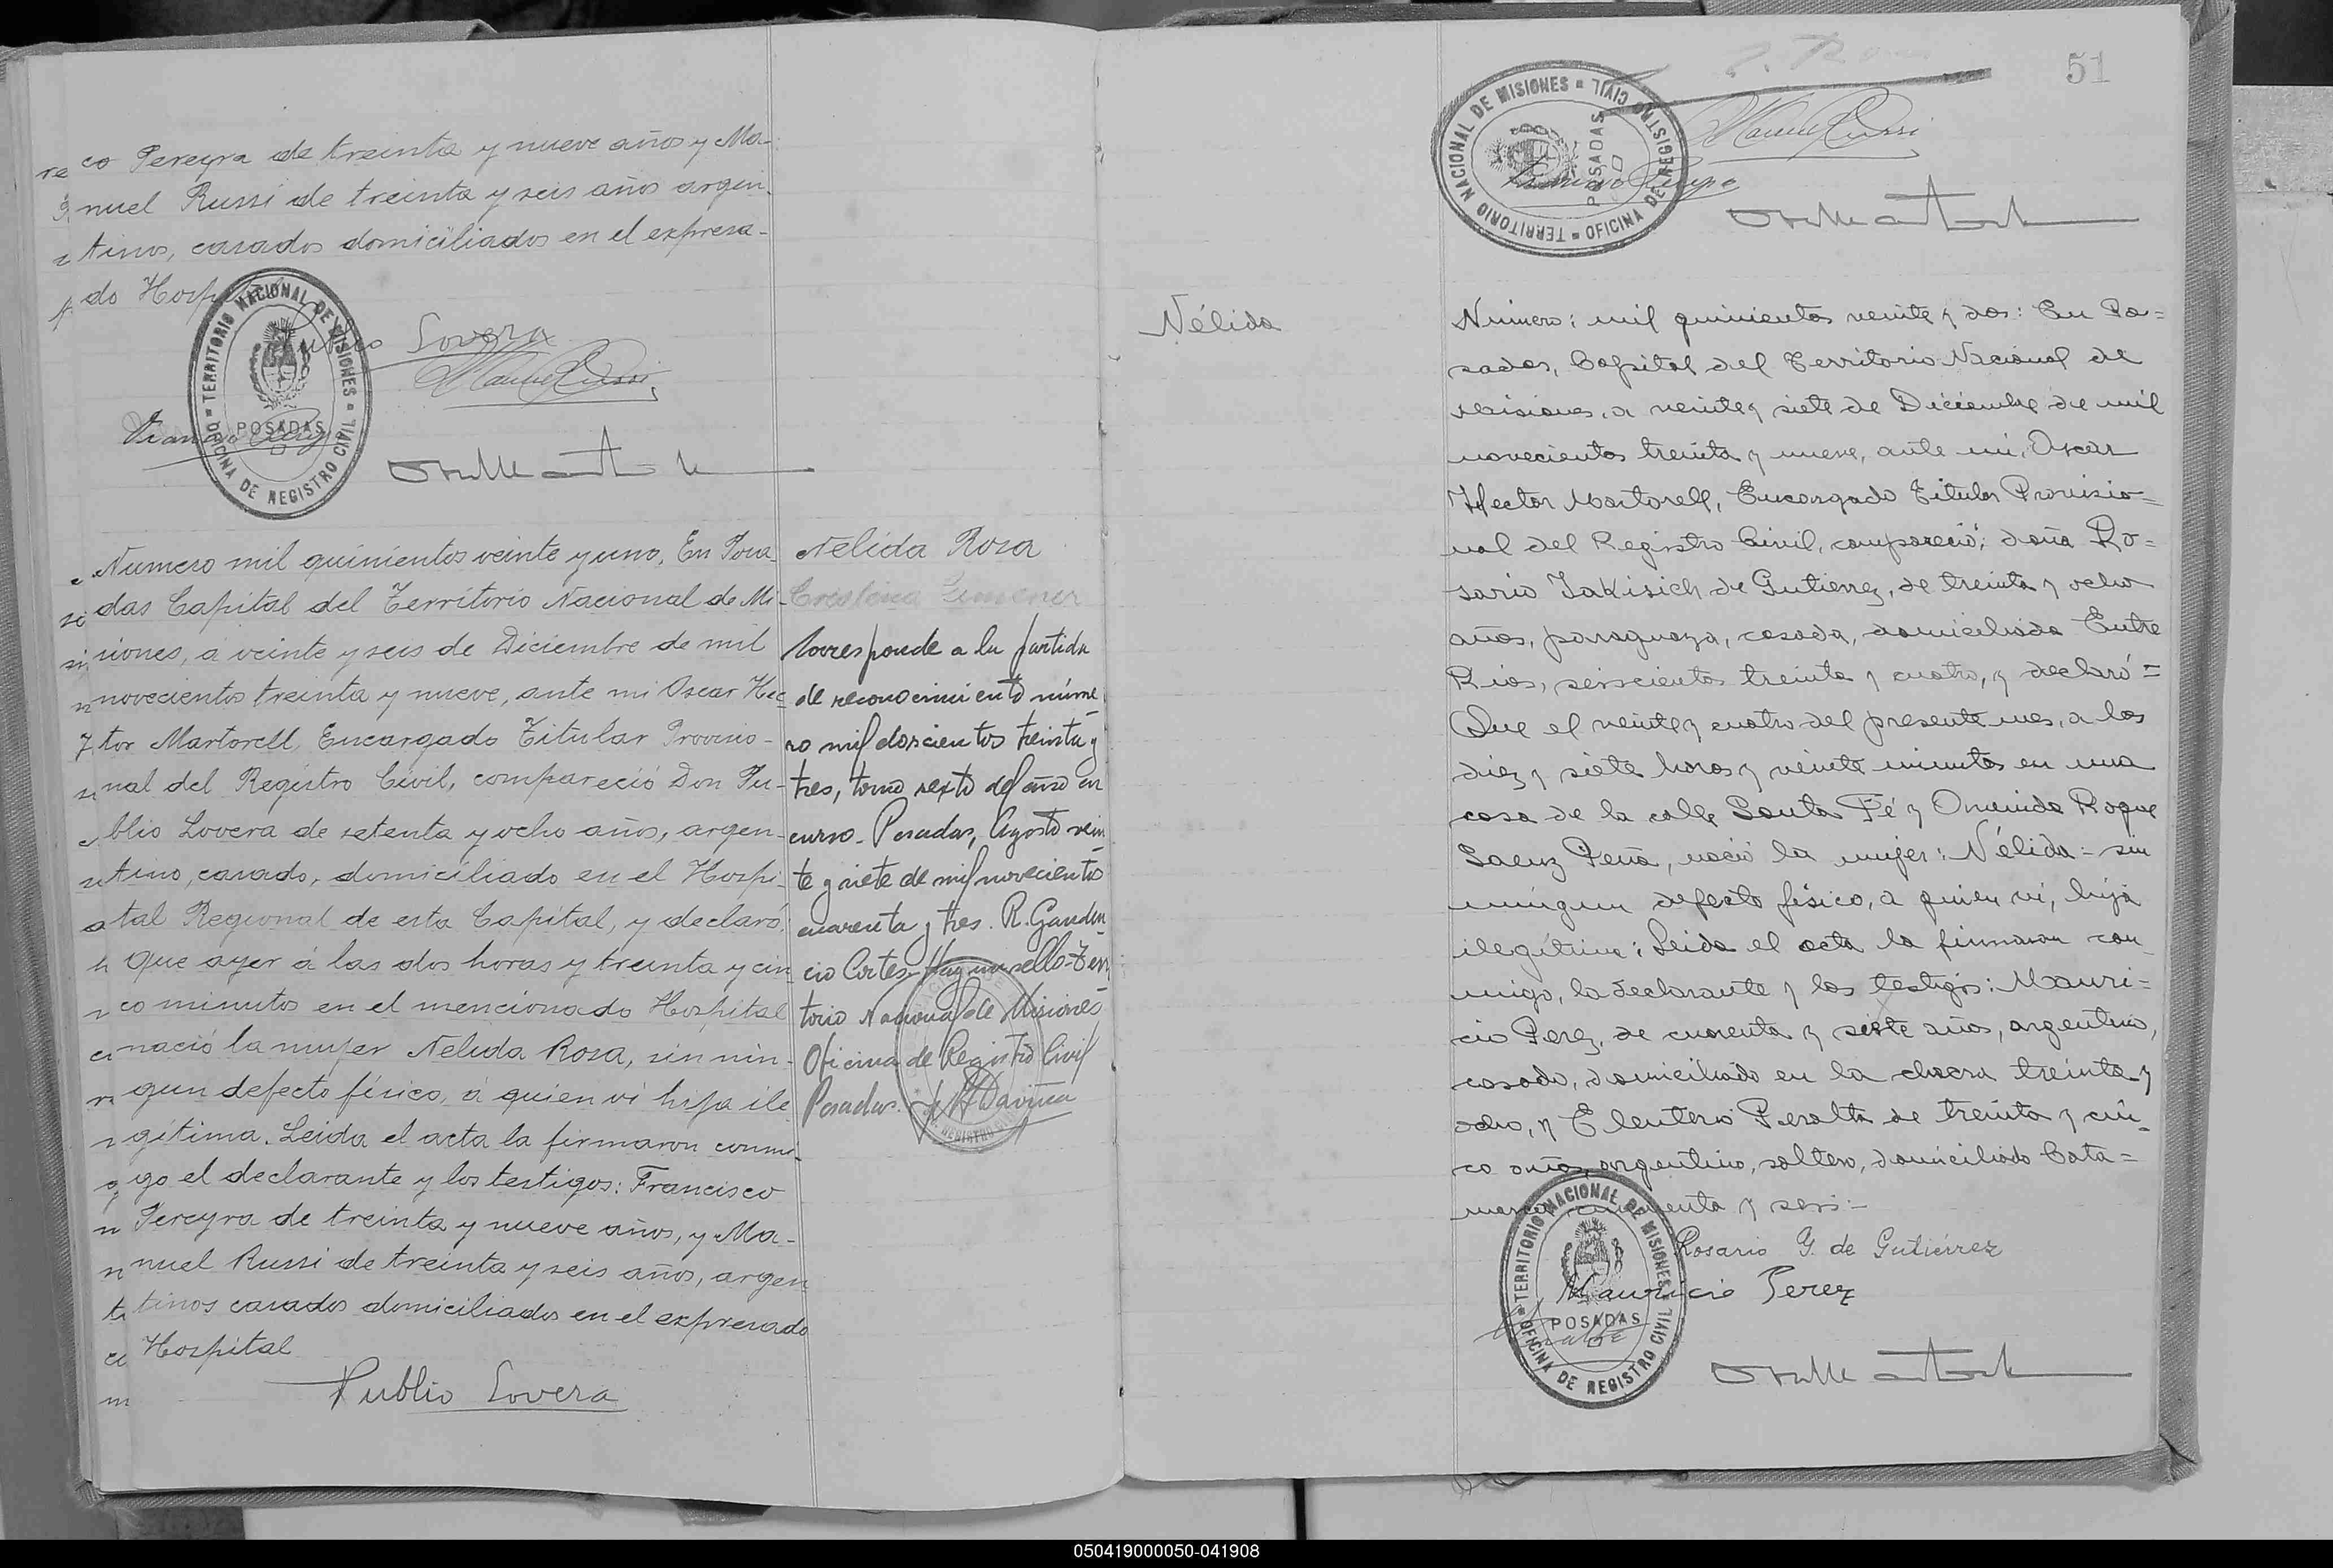 co Pereyra de treinta y nueve años y Ma-
nuel Russi de treinta y seis años argen-
tinos, casados domiciliados en el expresa-
do Hospital
TERRITORIO NACIONAL DE MISIONES
OFICINA DE REGISTRO CIVIL
POSADAS
Publio Lovera
Manuel Russi
Numero mil quinientos veinte y uno, En Posa-
das Capital del Territorio Nacional de Mi-
siones, á veinte y seis de Diciembre de mil
novecientos treinta y nueve, ante mi Oscar Hec-
tor Martorell, Encargado Titular Provisio-
nal del Registro Civil, compareció Don Pu-
blio Lovera de setenta y ocho años, argen-
tino, casado, domiciliado en el Hospi-
tal Regional de esta Capital, y declaró:
Que ayer á las dos horas y treinta y cin
co minutos en el mencionado Hospital
nació la mujer Nelida Rosa, sin nin-
gun defecto físico, á quien vi hija ile
gitima. Leida el acta la firmaron conmi-
go el declarante y los testigos: Francisco
Pereyra de treinta y nueve años, y Ma-
nuel Russi de treinta y seis años, argen
tinos casados domiciliados en el expresado
Hospital
Publio Lovera
Nelida Rosa
Cristina Gimenez
Corresponde a la partida
de reconocimiento núme-
ro mil doscientos treinta y
tres, tomo sexto del año en
curso. Posadas, Agosto vein-
te y siete de mil novecientos
cuarenta y tres. R. Gauden-
cio Cortes. Hay un sello-Terri-
torio Nacional de Misiones
Oficina de Registro Civil
Posadas.
51
TERRITORIO NACIONAL DE MISIONES
OFICINA DE REGISTRO CIVIL
POSADAS
Manuel Russi
Nélida
Número: mil quinientos veinte y dos: En Po=
sadas, Capital del Territorio Nacional de
Misiones, a veinte y siete de Diciembre de mil
novecientos treinta y nueve, ante mi, Oscar
Hector Martorell, Encargado Titular Provisio=
nal del Registro Civil, compareció: doña Ro=
sario Jakisich de Gutierrez, de treinta y ocho
años, paraguaya, casada, domiciliada Entre
Rios, seiscientos treinta y cuatro, y declaró=
Que el veinte y cuatro del presente mes, a las
diez y siete horas y veinte minutos en una
casa de la calle Santa Fé y Avenida Roque
Saenz Peña, nació la mujer: Nélida= sin
ningun defecto físico, a quien vi, hija
ilegítima: Leida el acta la firmaron con-
migo, la declarante y los testigos: Mauri=
cio Perez, de cuarenta y siete años, argentino,
casado, domiciliado en la chacra treinta y
ocho, y Eleuterio Peralta de treinta y cin-
co años, argentino, soltero, domiciliado Cata=
marca cincuenta y seis=
Rosario G. de Gutiérrez
Mauricio Perez
TERRITORIO NACIONAL DE MISIONES
OFICINA DE REGISTRO CIVIL
POSADAS
050419000050-041908